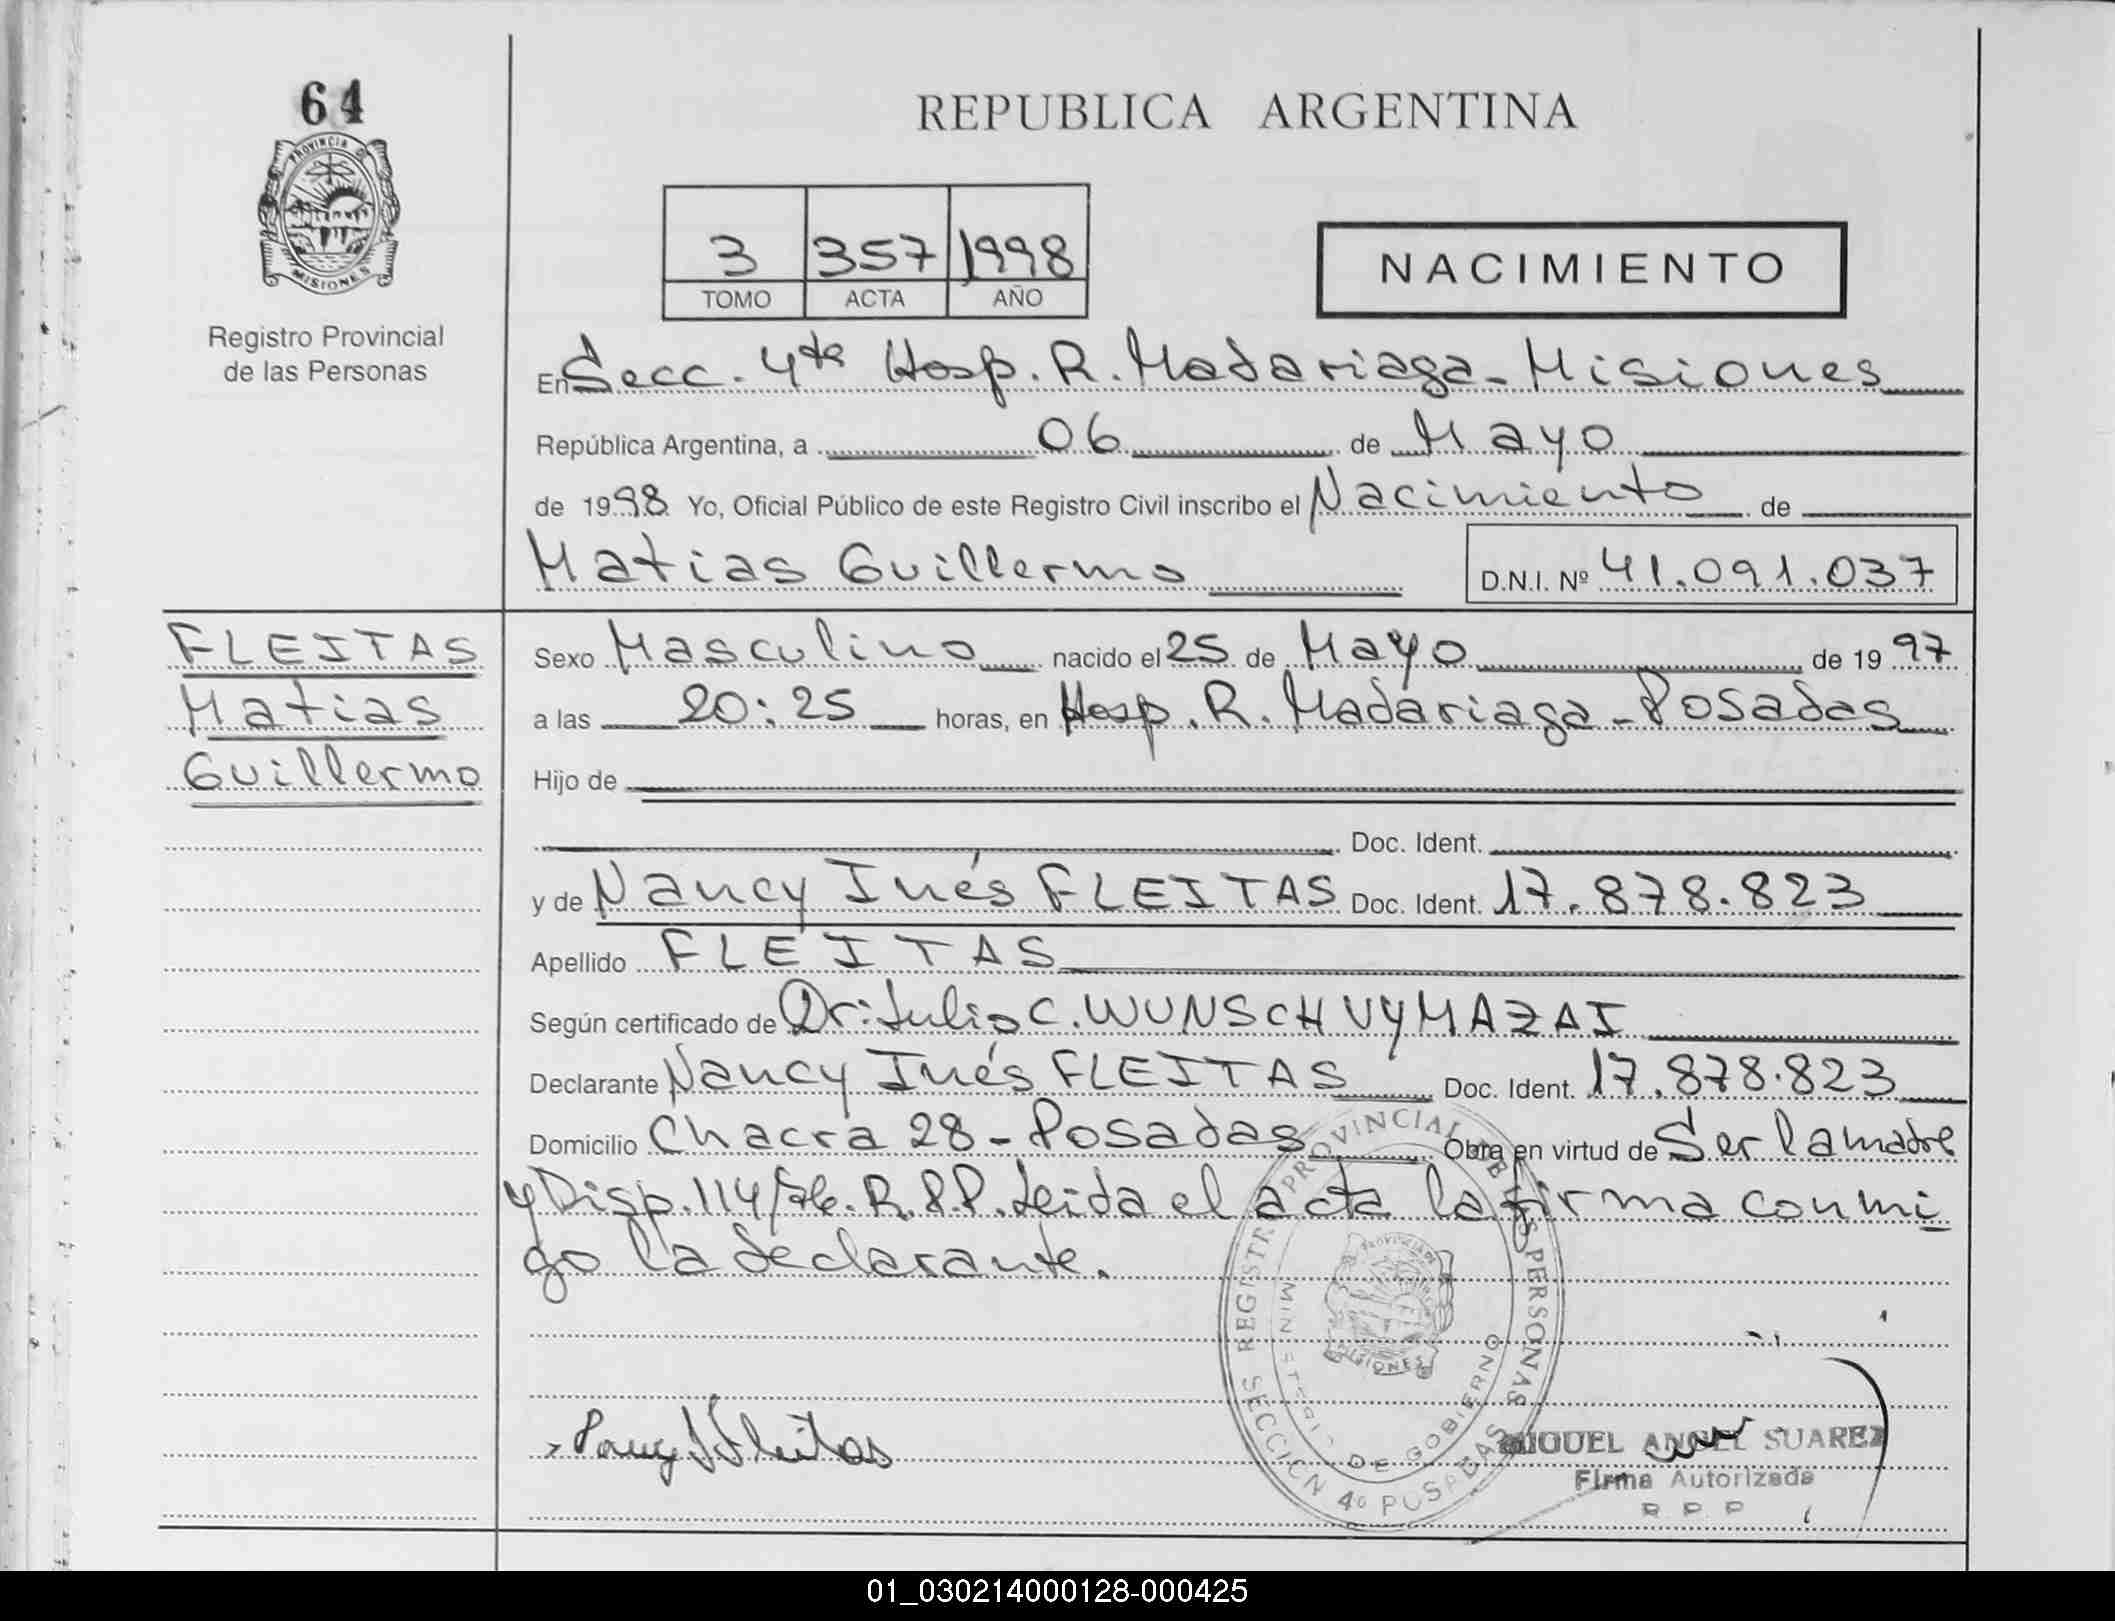 64
PROVINCIA DE
MISIONES
Registro Provincial
de las Personas
REPUBLICA ARGENTINA
3 357 1998
TOMO ACTA AÑO
NACIMIENTO
En Secc. 4ta Hosp. R. Madariaga - Misiones
República Argentina, a 06 de Mayo
de 1998 Yo, Oficial Público de este Registro Civil inscribo el Nacimiento de
Matias Guillermo D.N.I. Nº 41.091.037
FLEITAS
Matias
Guillermo
Sexo Masculino nacido el 25 de Mayo de 1997
a las 20:25 horas, en Hosp. R. Madariaga - Posadas
Hijo de
Doc. Ident.
y de Nancy Inés FLEITAS Doc. Ident. 17.878.823
Apellido FLEITAS
Según certificado de Dr: Julio C. WUNSCH VYMAZAI
Declarante Nancy Inés FLEITAS Doc. Ident. 17.878.823
Domicilio Chacra 28 - Posadas Obra en virtud de Ser la madre
y Disp. 114/76. R.P.P. Leida el acta la firma conmi
go la declarante.
REGISTRO PROVINCIAL DE LAS PERSONAS
MINISTERIO DE GOBIERNO
PROVINCIA DE
MISIONES
SECCION 4º POSADAS
Nancy I Fleitas
MIGUEL ANGEL SUAREZ
Firma Autorizada
R. P. P.
01_030214000128-000425